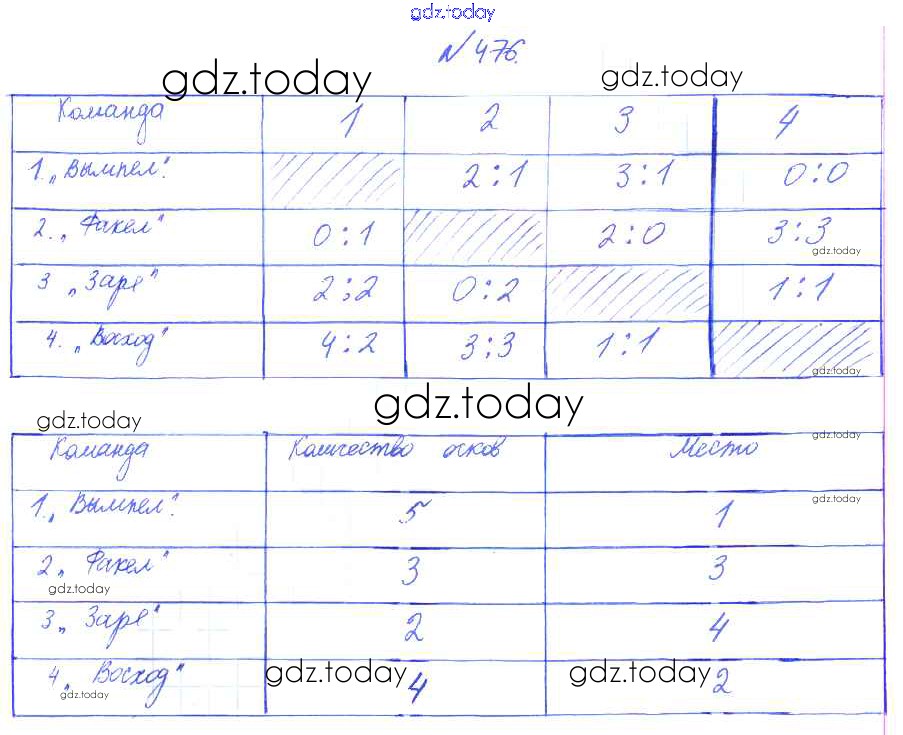 gdz.today
№ 476.
gdz.today gdz.today
Команда 1 2 3 4
1. „Вымпел". 2:1 3:1 0:0
2. „Факел" 0:1 2:0 3:3
gdz.today
3 „Заре" 2:2 0:2 1:1
4. „Восход" 4:2 3:3 1:1
gdz.today
gdz.today gdz.today
Команда Количество очков Место
gdz.today
1. „Вымпел". 5 1
gdz.today
2 „Факел" 3 3
gdz.today
3 „Заре" 2 4
4 „Восход" 4 2
gdz.today gdz.today
gdz.today